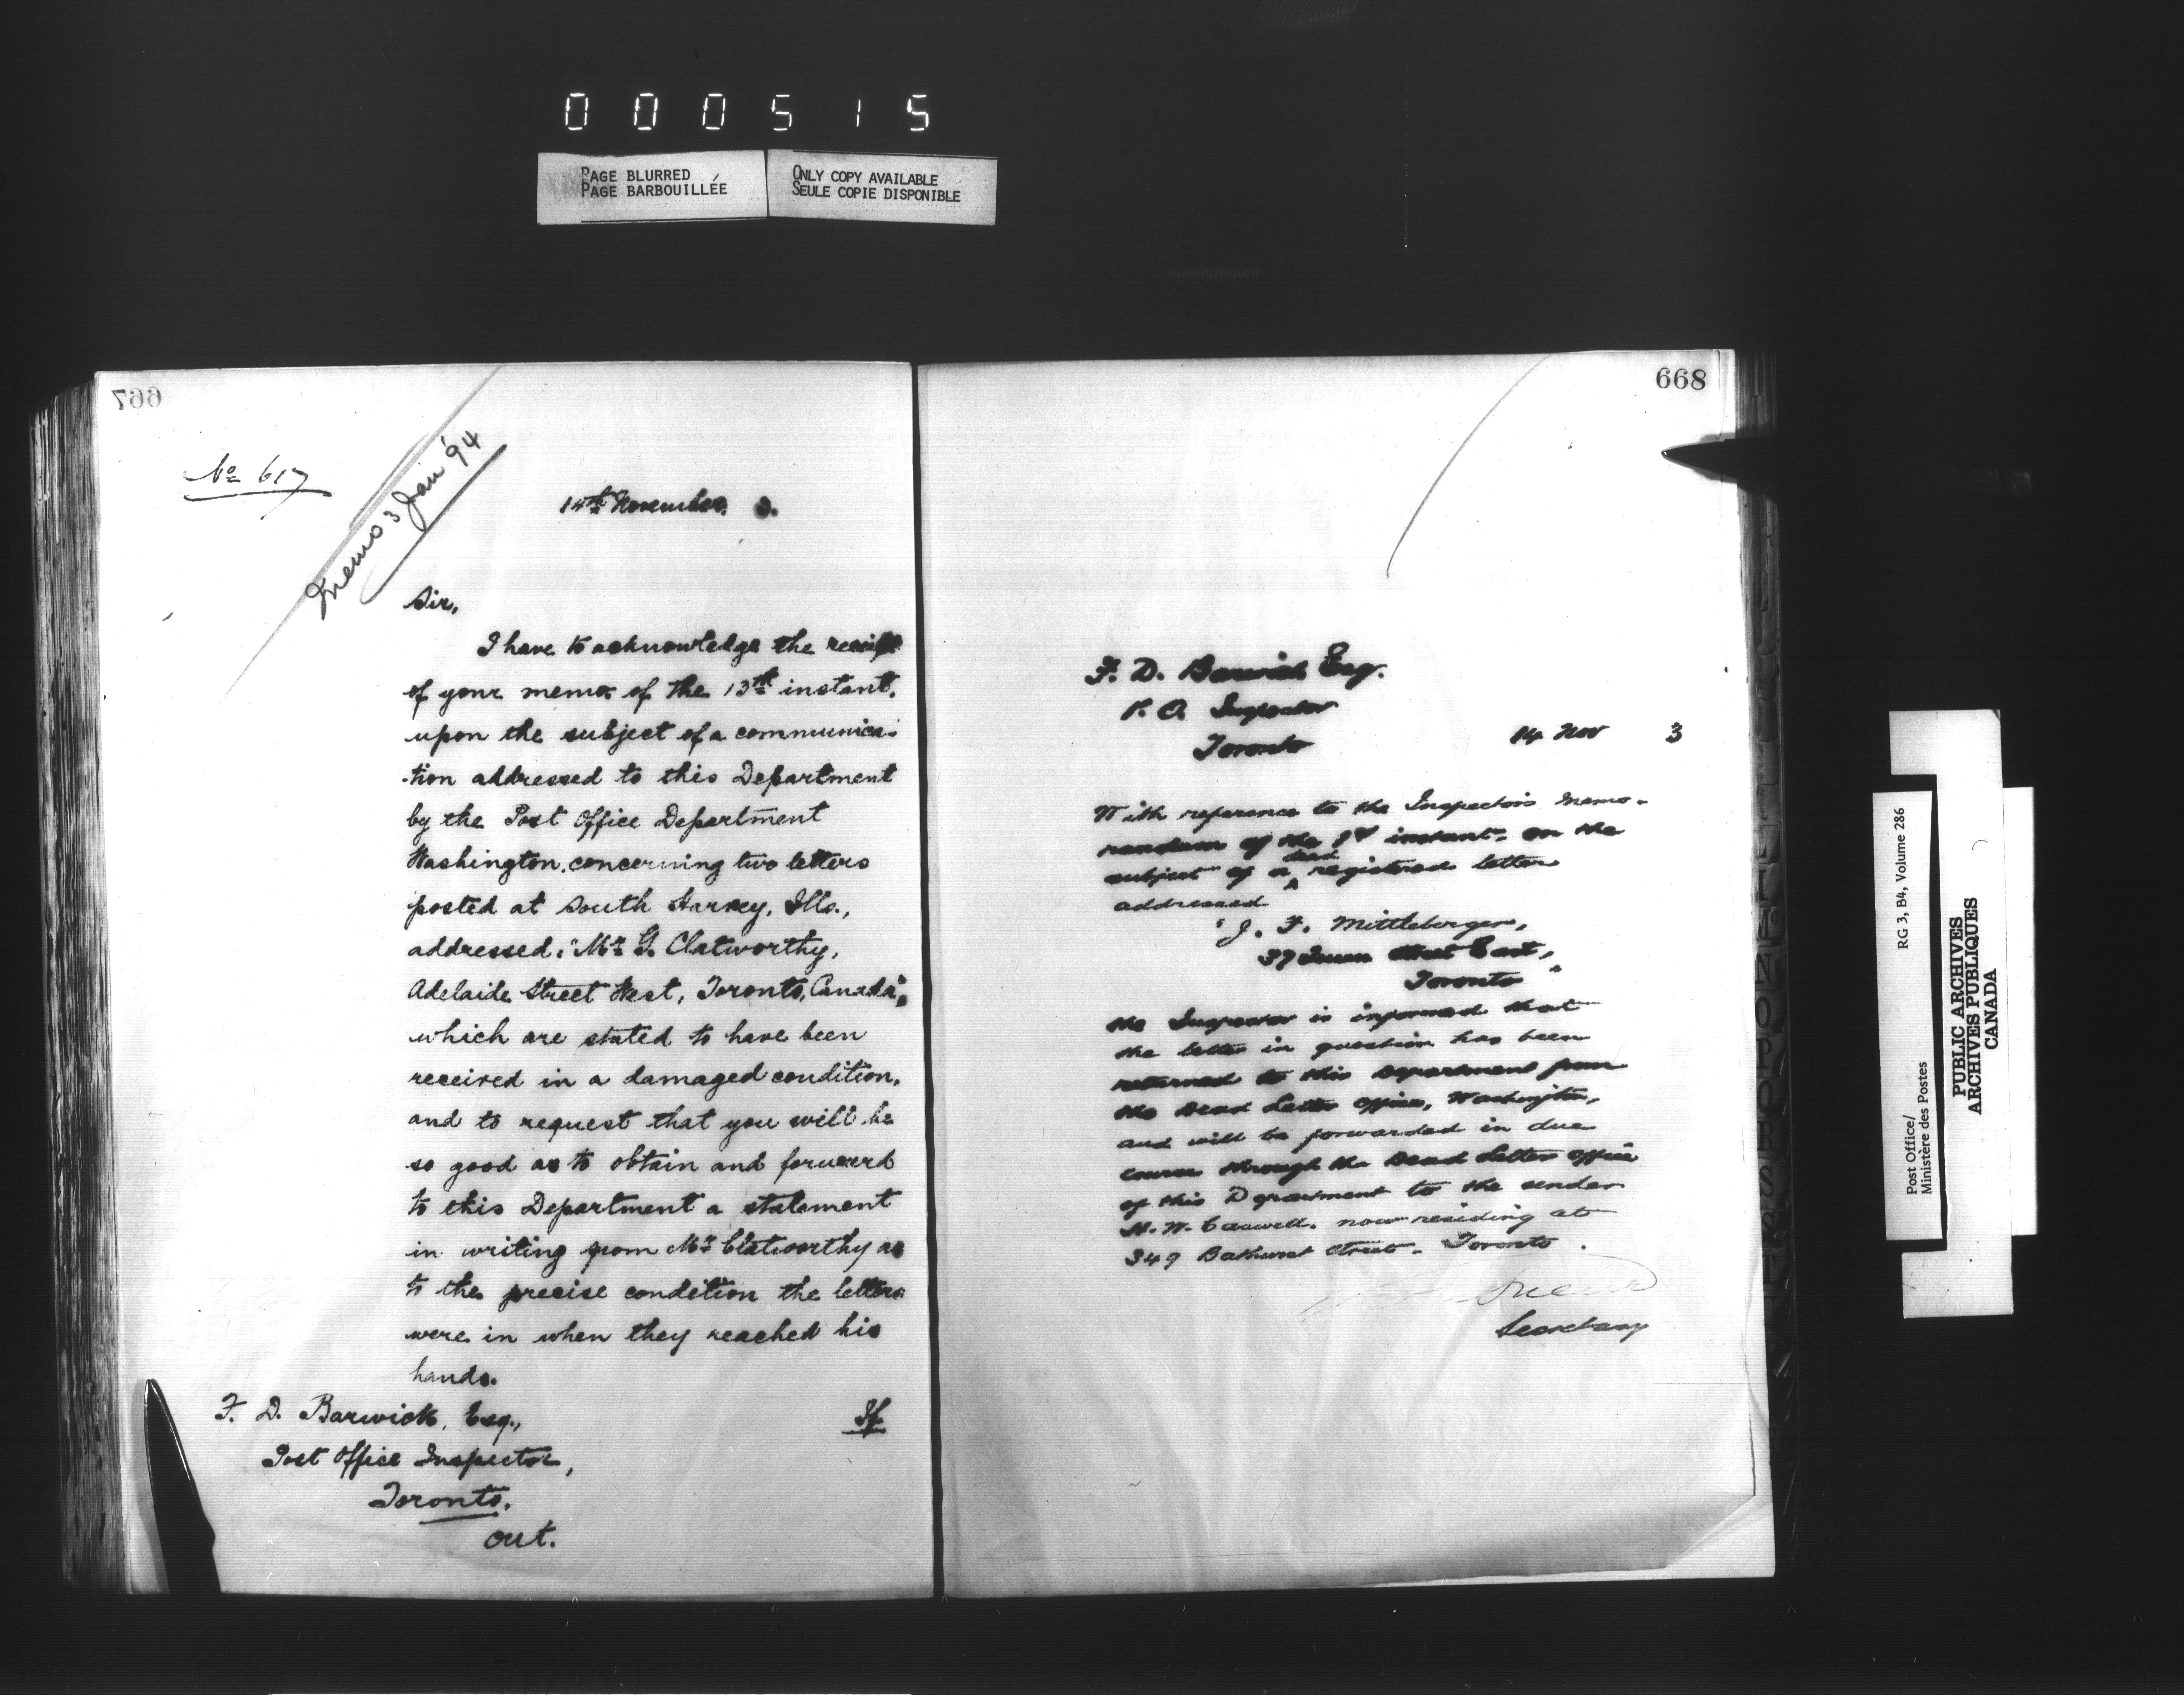 000515
PAGE BLURRED
PAGE BARBOUILLÉE
ONLY COPY AVAILABLE
SEULE COPIE DISPONIBLE
667
No 617
Memo 3 Jan '94
14th November, 3.
Sir,
I have to acknowledge the receipt
of your memo. of the 13th instant,
upon the subject of a communica-
-tion addressed to this Department
by the Post Office Department
Washington, concerning two letters
posted at South Harvey, Ills.,
addressed: "Mr G. Clatworthy,
Adelaide Street West, Toronto, Canada",
which are stated to have been
received in a damaged condition,
and to request that you will be
so good as to obtain and forward
to this Department a statement
in writing from Mr Clatworthy as
to the precise condition the letters
were in when they reached his
hands.
F. D. Barwick, Esq.,
Post Office Inspector,
Toronto.
out.
668
F. D. Barwick Esq.
P. O. Inspector
Toronto
14 Nov 3
With reference to the Inspector's memo-
randum of the instant on the
subject of a dead registered letter
addressed
"J. F. Mittleberger,
37 Queen Street East,
Toronto"
the Inspector is informed that
the letter in question has been
returned to this Department from
the Dead Letter Office, Washington,
and will be forwarded in due
course through the Dead Letter Office
of this Department to the sender
now residing at
349 Bathurst Street, Toronto.
Secretary
RG 3, B4, Volume 286
Post Office/
Ministère des Postes
PUBLIC ARCHIVES
ARCHIVES PUBLIQUES
CANADA